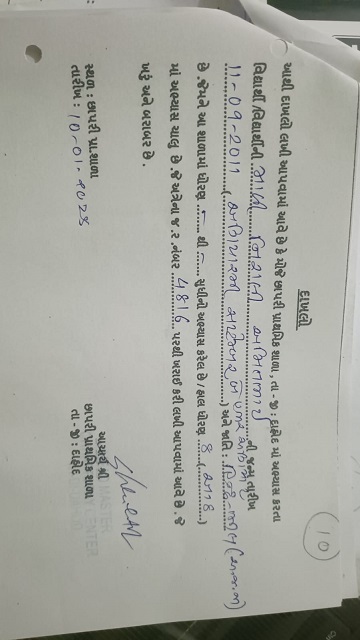 10
દાખલો
આથી દાખલો લખી આપવામાં આવે છે કે મોજે છાપરી પ્રાથમિક શાળા, તા - જી: દાહોદ માં અભ્યાસ કરતા
વિદ્યાર્થી/વિદ્યાર્થીની માળી મિરાલી અમિતભાઈ ની જન્મ તારીખ
11-09-2011 (અગિયારમી સપ્ટેમ્બર બે હજાર અગિયાર) અને જાતિ: હિન્દુ-માળી (સા.શૈ.)
છે. જેમને આ શાળામાં ધોરણ - થી - સુધીનો અભ્યાસ કરેલ છે / હાલ ધોરણ 8 (આઠ)
માં અભ્યાસ ચાલુ છે. જે અત્રેના જ.ર.નંબર 4816 પરથી ખરાઈ કરી લખી આપવામાં આવે છે. જે
ખરું અને બરાબર છે.
સ્થળ: છાપરી પ્રા.શાળા
તારીખ: 10-01-2025
આચાર્ય શ્રી
છાપરી પ્રાથમિક શાળા
તા - જી: દાહોદ